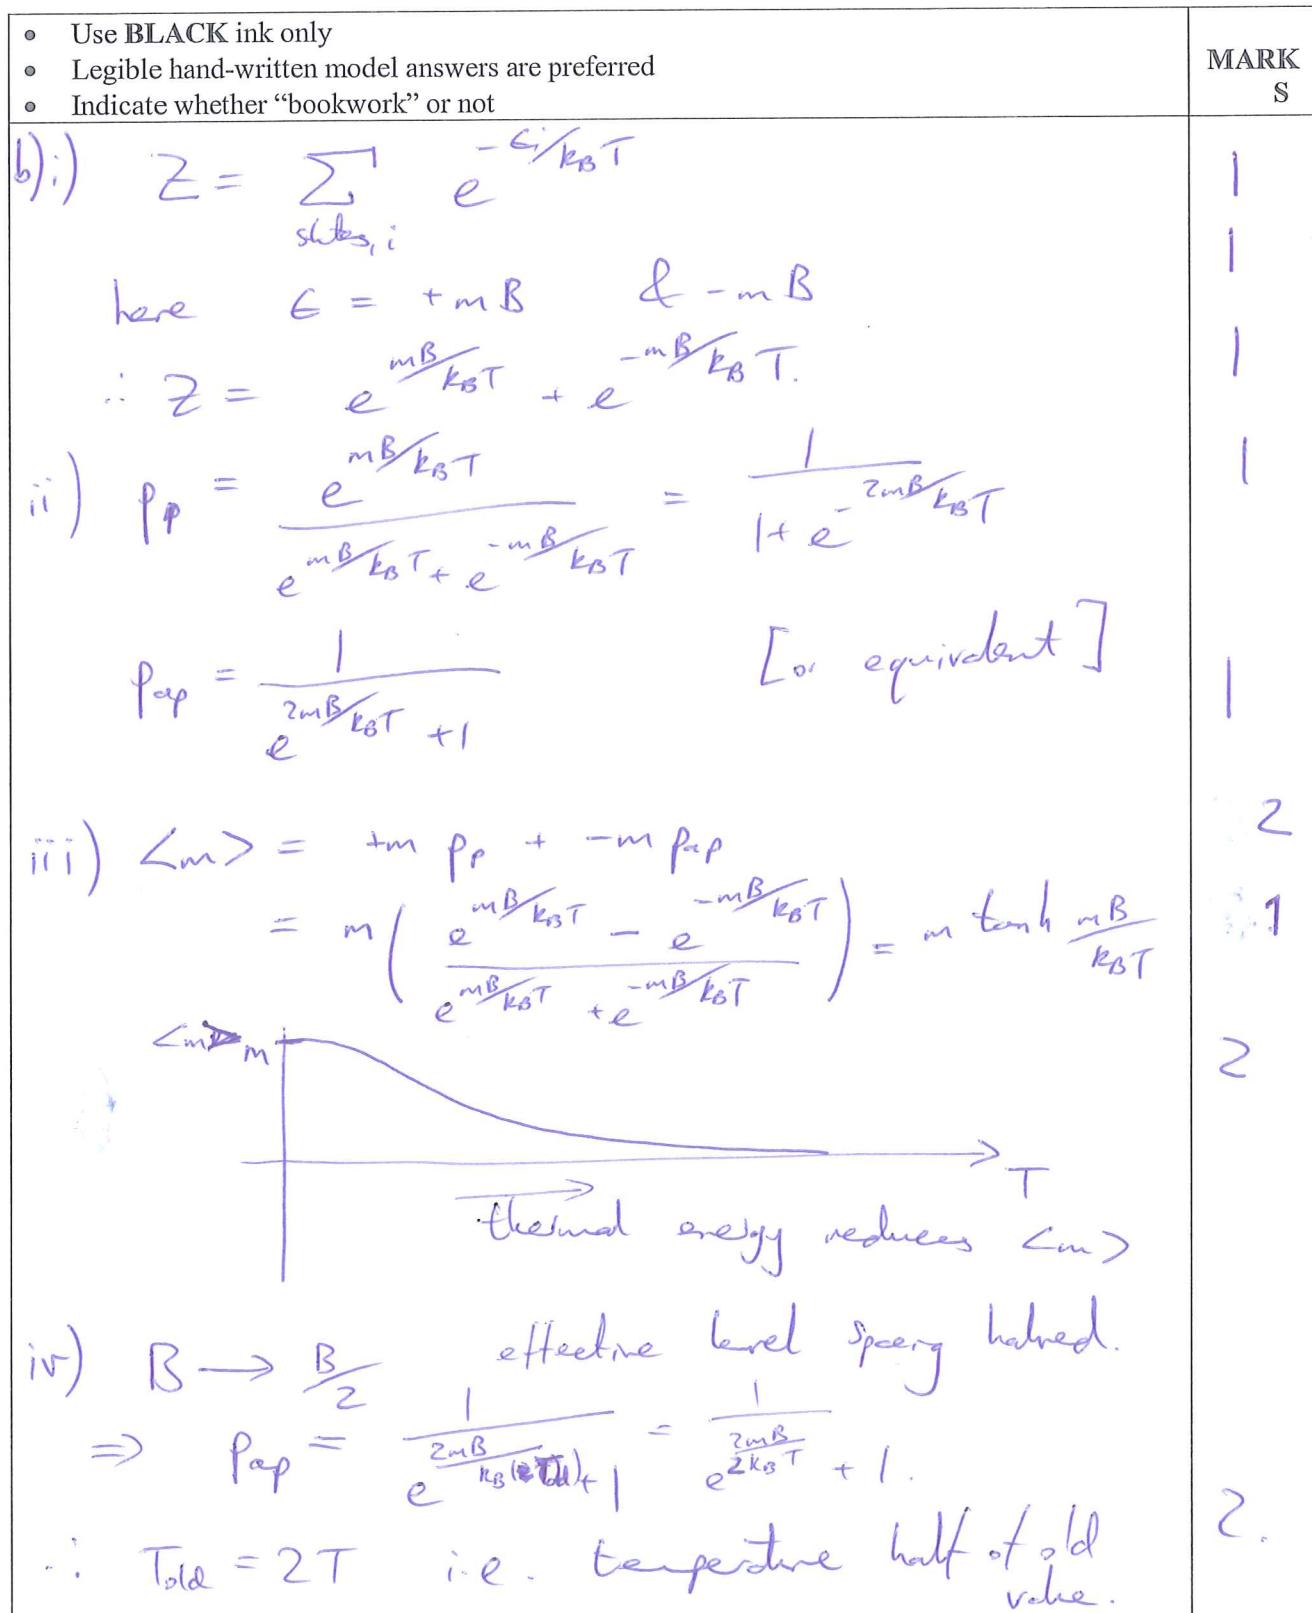 • Use BLACK ink only
• Legible hand-written model answers are preferred
• Indicate whether "bookwork" or not
MARKS
b) i) Z = Σ_{states, i} e^{-ϵi/k_B T} 1
1
here ϵ = +mB & -mB
∴ Z = e^{mB/k_B T} + e^{-mB/k_B T}. 1
ii) p_p = e^{mB/k_B T} / (e^{mB/k_B T} + e^{-mB/k_B T}) = 1 / (1 + e^{-2mB/k_B T}) 1
p_ap = 1 / (e^{2mB/k_B T} + 1) [or equivalent] 1
iii) <m> = +m p_p + -m p_ap 2
= m ( (e^{mB/k_B T} - e^{-mB/k_B T}) / (e^{mB/k_B T} + e^{-mB/k_B T}) ) = m tanh mB/k_B T 1
<m> m 2
T
thermal energy reduces <m>
iv) B → B/2 effective level spacing halved.
⇒ p_ap = 1 / (e^{2mB/k_B(Told)} + 1) = 1 / (e^{2mB/2k_B T} + 1).
∴ Told = 2T i.e. temperature half of old 2.
value.